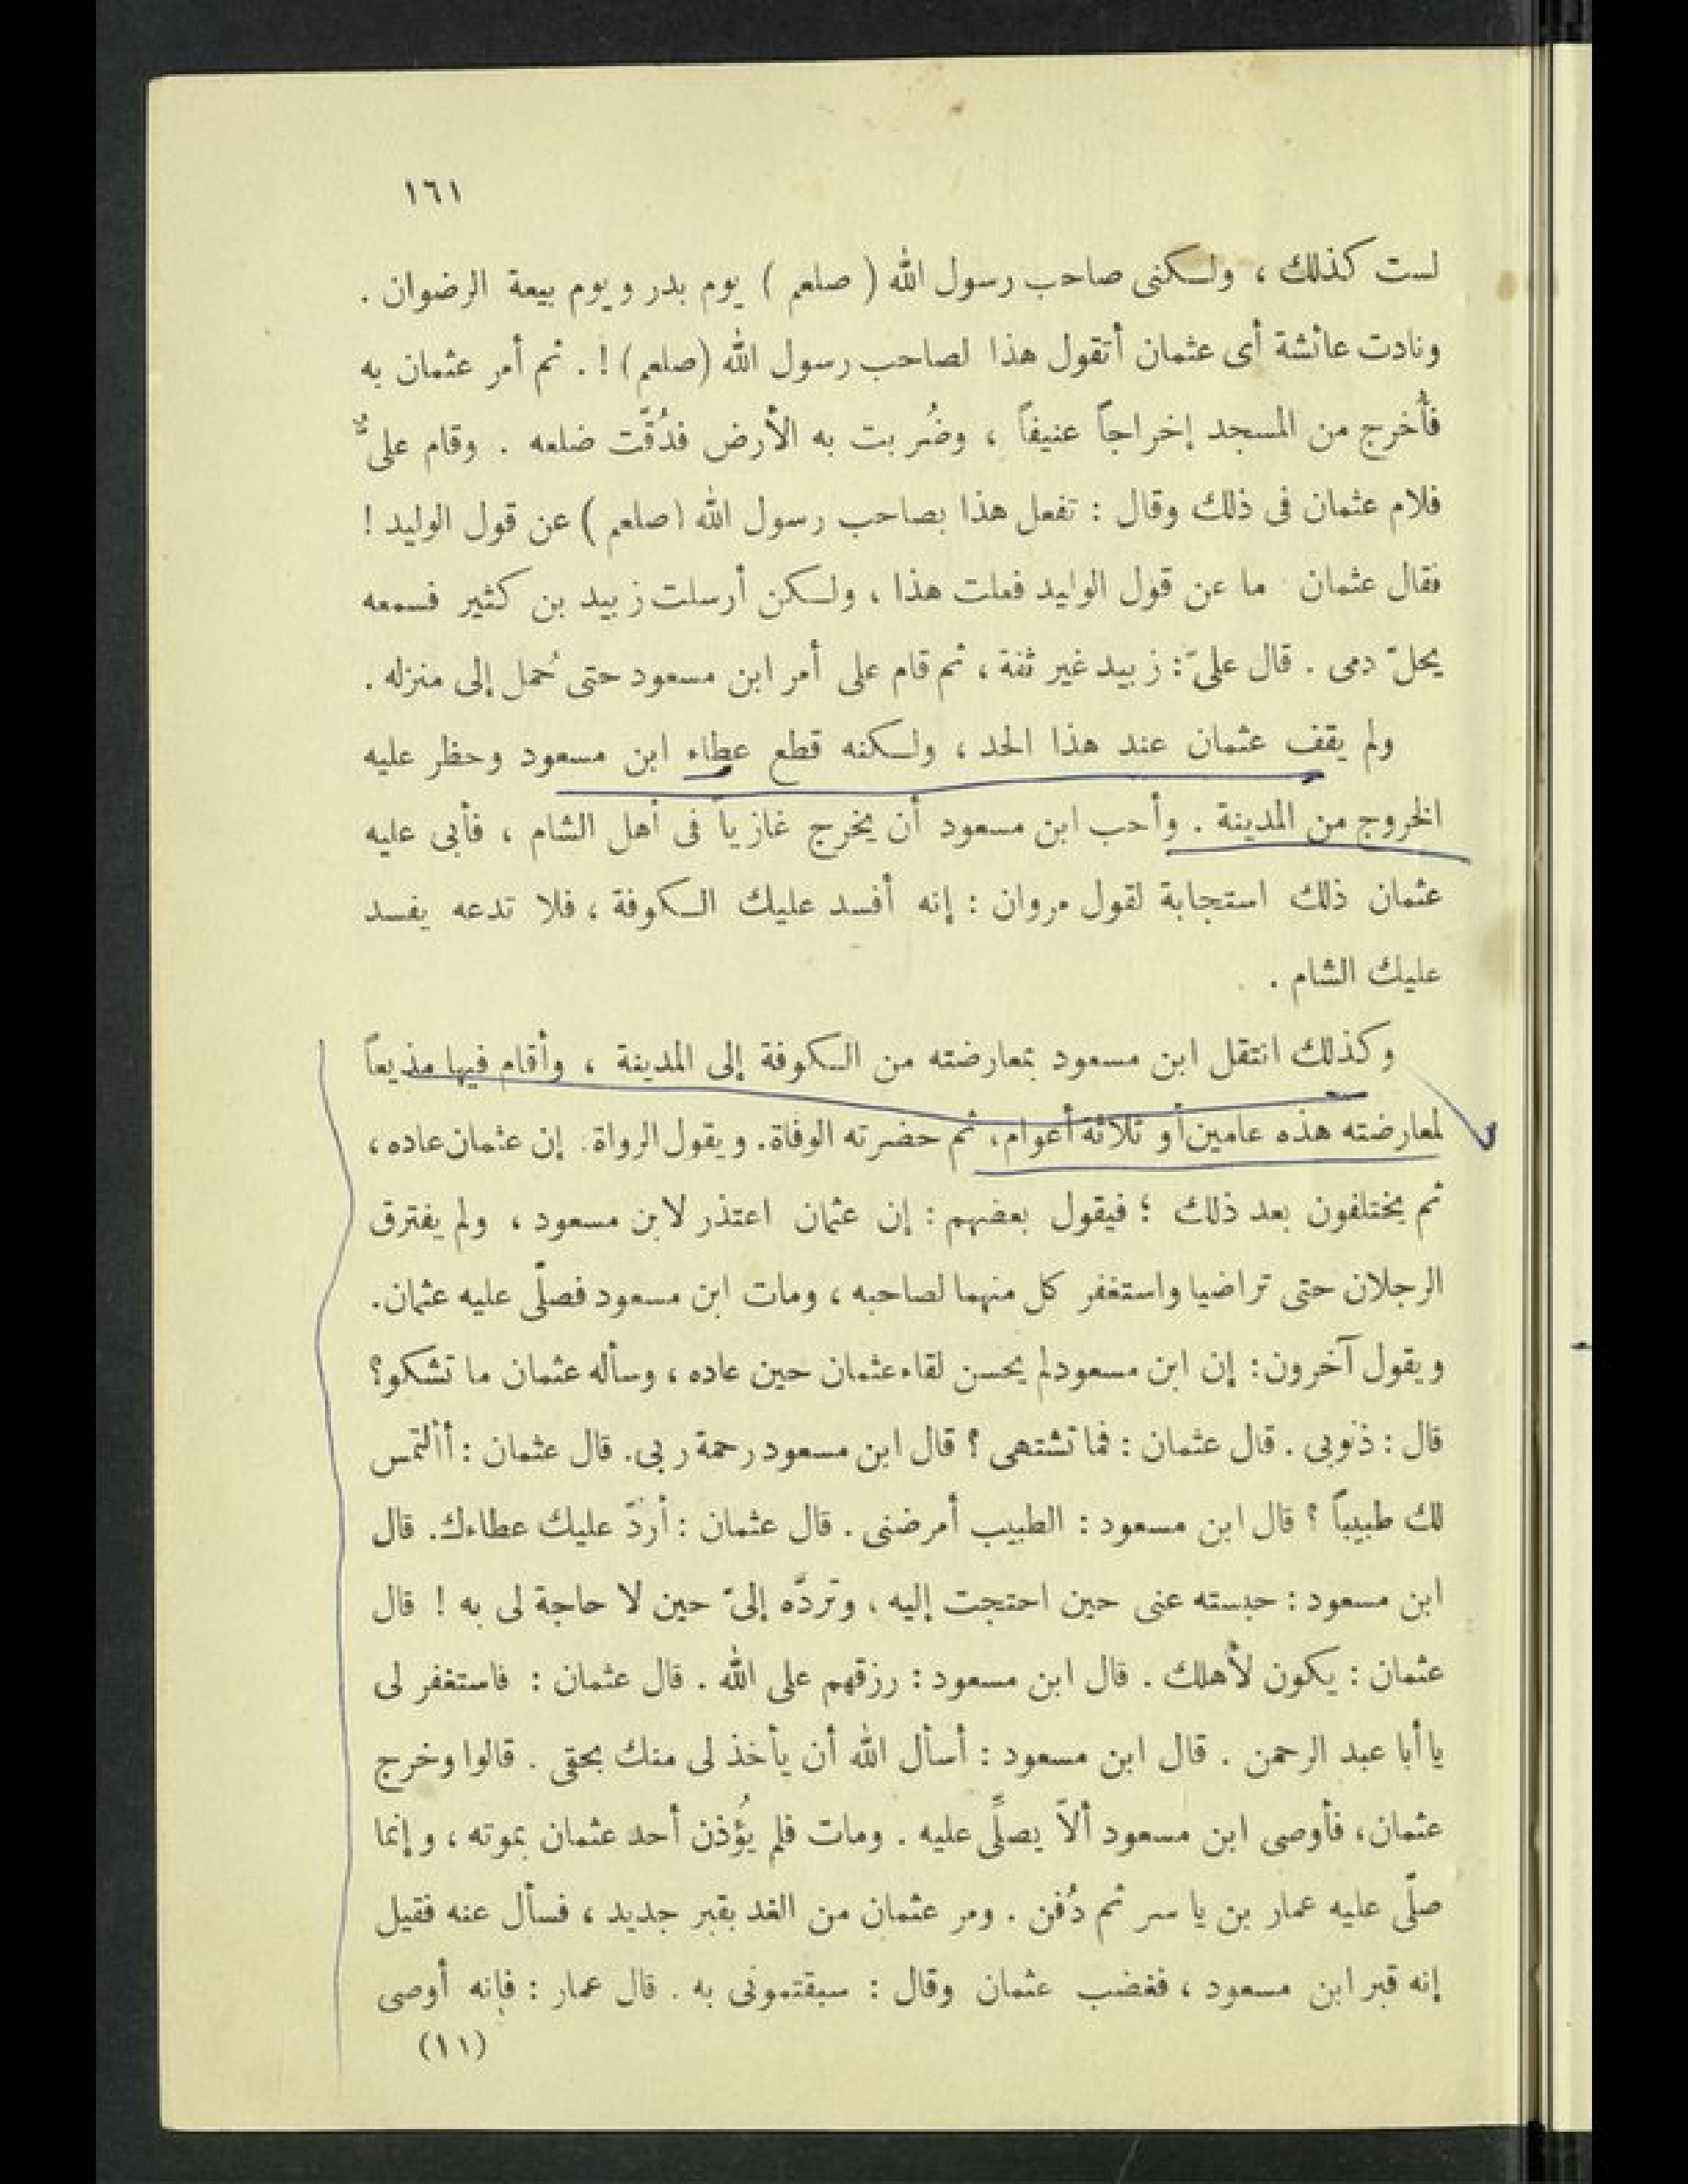 ١٦١
لست كذلك ، ولكنى صاحب رسول الله ( صلعم ) يوم بدر ويوم بيعة الرضوان .
ونادت عائشة أى عثمان أتقول هذا لصاحب رسول الله (صلعم) ! . ثم أمر عثمان به
فأُخرج من المسجد إخراجاً عنيفاً ، وضُربت به الأرض فدُقّت ضلعه . وقام علىٌّ
فلام عثمان فى ذلك وقال : تفعل هذا بصاحب رسول الله (صلعم ) عن قول الوليد !
فقال عثمان ما عن قول الوليد فعلت هذا ، ولكن أرسلت زبيد بن كثير فسمعه
يحلّ دمى . قال علىّ : زبيد غير ثقة ، ثم قام على أمر ابن مسعود حتى حُمل إلى منزله .
ولم يقف عثمان عند هذا الحد ، ولكنه قطع عطاء ابن مسعود وحظر عليه
الخروج من المدينة . وأحب ابن مسعود أن يخرج غازياً فى أهل الشام ، فأبى عليه
عثمان ذلك استجابة لقول مروان : إنه أفسد عليك الكوفة ، فلا تدعه يفسد
عليك الشام .
وكذلك انتقل ابن مسعود بمعارضته من الكوفة إلى المدينة ، وأقام فيها مذيعاً
لمعارضته هذه عامين أو ثلاثة أعوام، ثم حضرته الوفاة. ويقول الرواة: إن عثمان عاده ،
ثم يختلفون بعد ذلك ؛ فيقول بعضهم : إن عثمان اعتذر لابن مسعود ، ولم يفترق
الرجلان حتى تراضيا واستغفر كل منهما لصاحبه ، ومات ابن مسعود فصلّى عليه عثمان.
ويقول آخرون: إن ابن مسعود لم يحسن لقاء عثمان حين عاده ، وسأله عثمان ما تشكو؟
قال : ذنوبى . قال عثمان : فما تشتهى ؟ قال ابن مسعود رحمة ربى. قال عثمان : أألتمس
لك طبيباً ؟ قال ابن مسعود : الطبيب أمرضنى . قال عثمان : أردّ عليك عطاءك. قال
ابن مسعود : حبسته عنى حين احتجت إليه ، وتردَّه إلىّ حين لا حاجة لى به ! قال
عثمان : يكون لأهلك . قال ابن مسعود : رزقهم على الله . قال عثمان : فاستغفر لى
يا أبا عبد الرحمن . قال ابن مسعود : أسأل الله أن يأخذ لى منك بحقى . قالوا وخرج
عثمان، فأوصى ابن مسعود ألاّ يصلِّى عليه . ومات فلم يُؤذن أحد عثمان بموته ، وإنما
صلّى عليه عمار بن ياسر ثم دُفن . ومر عثمان من الغد بقبر جديد ، فسأل عنه فقيل
إنه قبر ابن مسعود ، فغضب عثمان وقال : سبقتمونى به . قال عمار : فإنه أوصى
(١١)